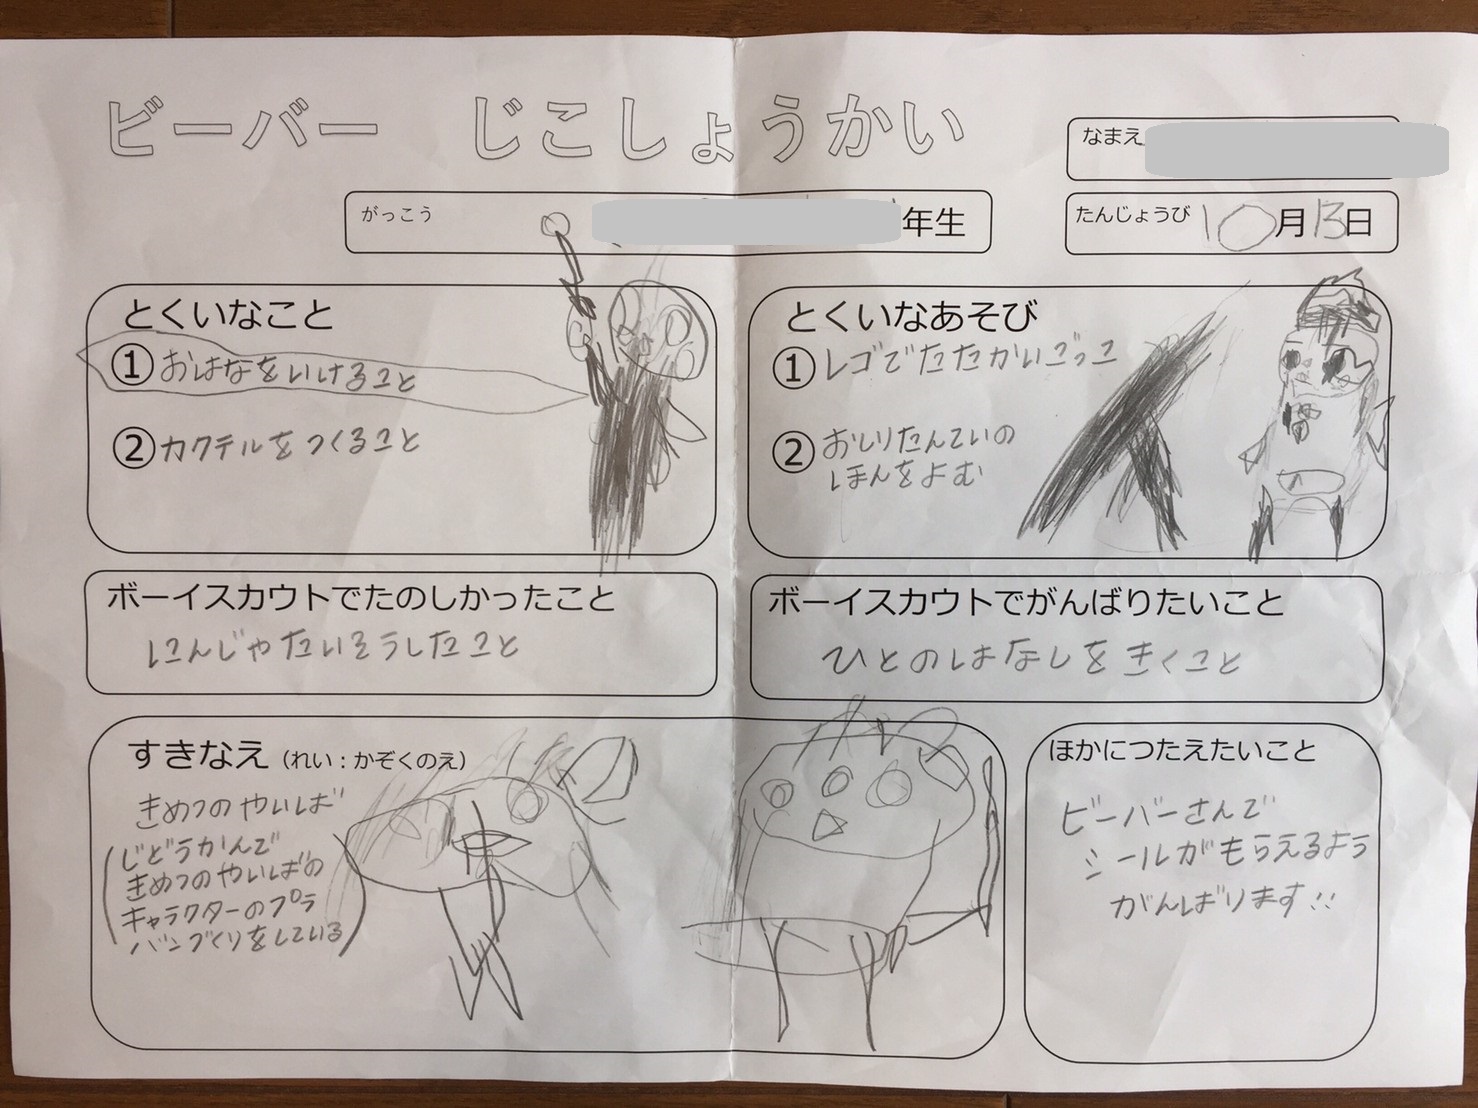 ビーバー　じこしょうかい
なまえ
がっこう
年生
たんじょうび 10月13日
とくいなこと
① おはなをいけること
② カクテルをつくること
とくいなあそび
① レゴでたたかいごっこ
② おしりたんていの
ほんをよむ
ボーイスカウトでたのしかったこと
にんじゃたいそうしたこと
ボーイスカウトでがんばりたいこと
ひとのはなしをきくこと
すきなえ（れい：かぞくのえ）
きめつのやいば
（じどうかんで
きめつのやいばの
キャラクターのプラ
バンづくりをしている）
ほかにつたえたいこと
ビーバーさんで
シールがもらえるよう
がんばります!!